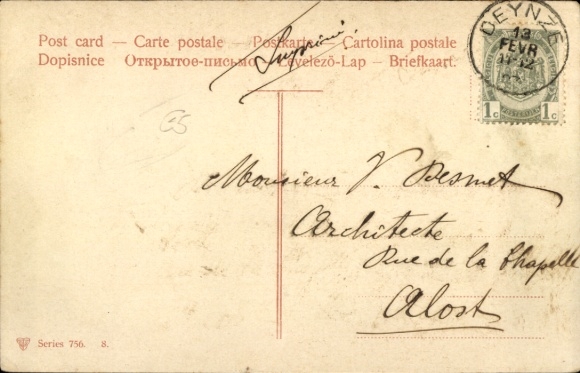 Post card — Carte postale — Postkarte — Cartolina postale
Dopisnice Открытое-письмо Levelező-Lap — Briefkaart.
DEYNZE
13
FEVR
1c 1c
Monsieur V. Desmet
Architecte
Rue de la Chapelle
Alost
Series 756. 8.